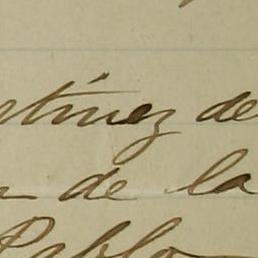 stinez de
n de la
Pablo